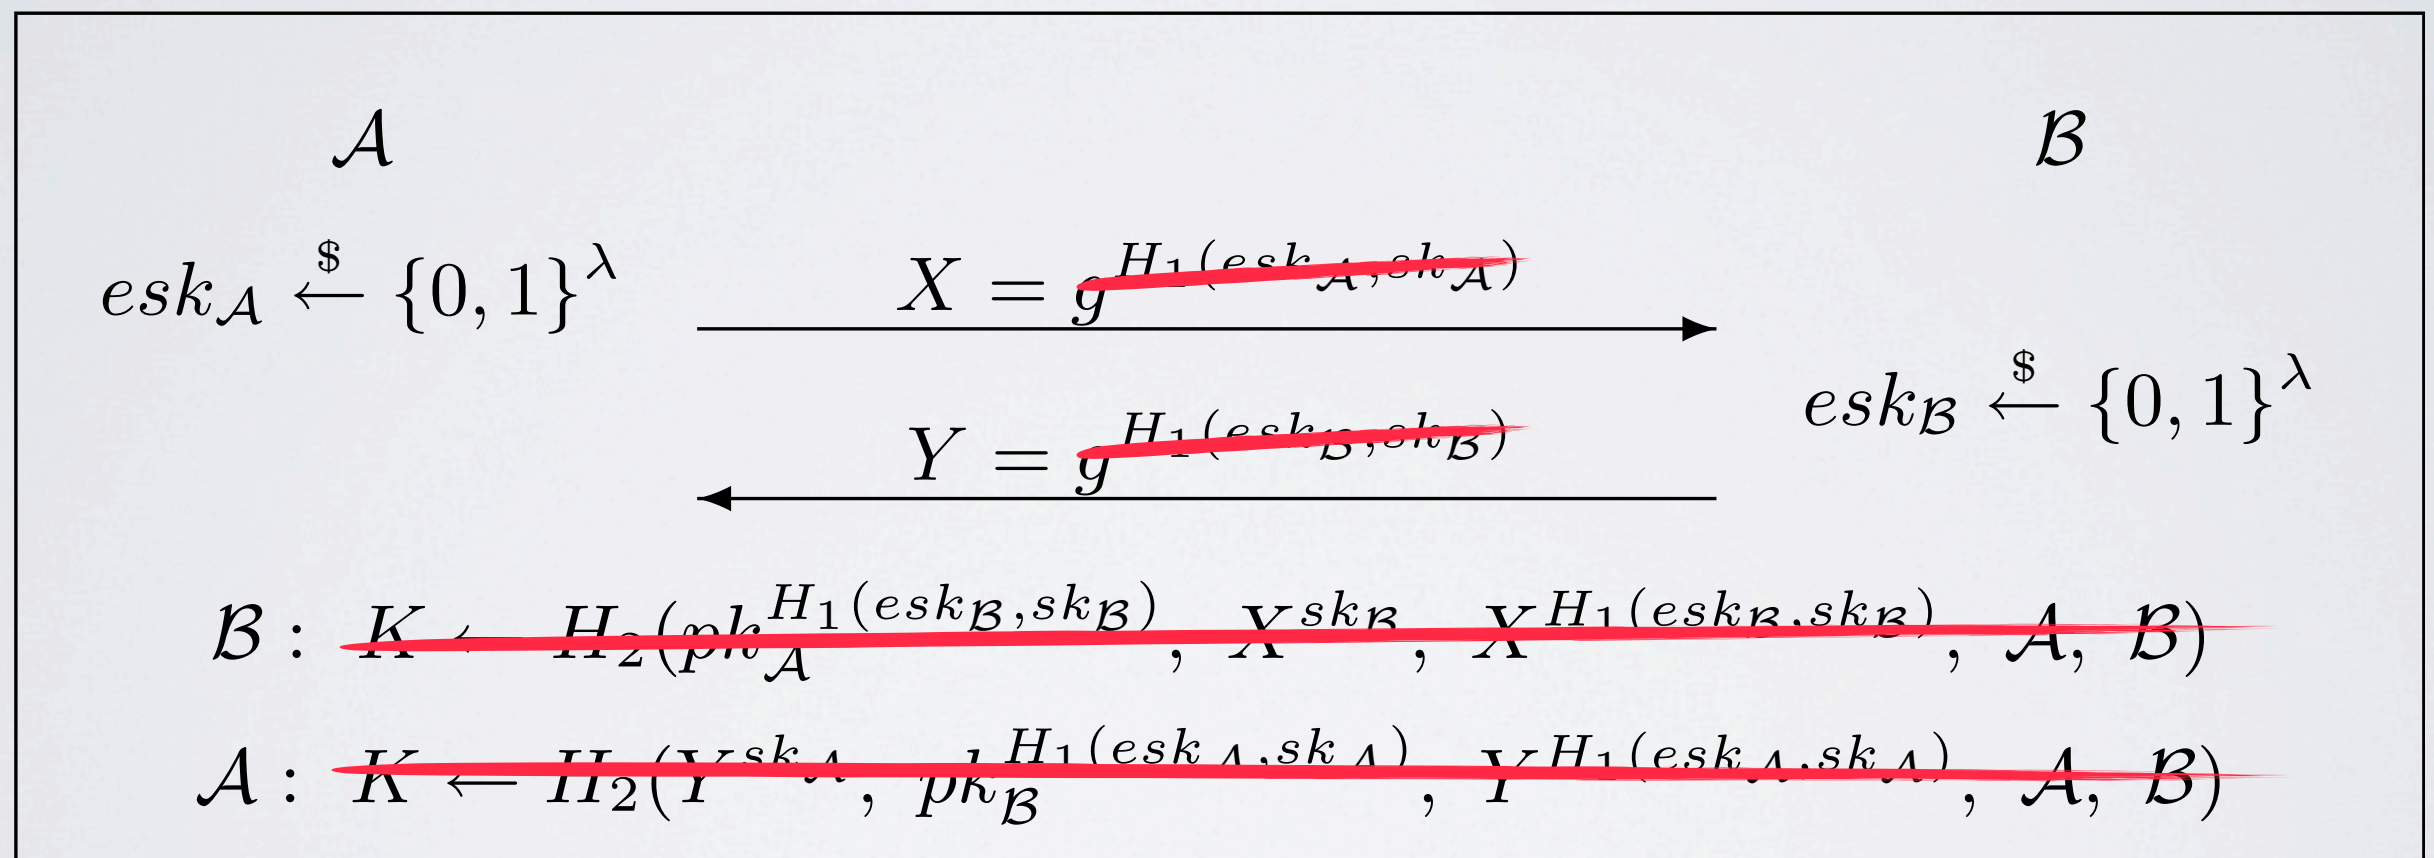 𝒜 ℬ
esk_𝒜 ←$ {0, 1}^λ X = g^{H_1(esk_𝒜, sk_𝒜)}
Y = g^{H_1(esk_ℬ, sk_ℬ)} esk_ℬ ←$ {0, 1}^λ
ℬ : K ← H_2(pk_𝒜^{H_1(esk_ℬ, sk_ℬ)}, X^{sk_ℬ}, X^{H_1(esk_ℬ, sk_ℬ)}, 𝒜, ℬ)
𝒜 : K ← H_2(Y^{sk_𝒜}, pk_ℬ^{H_1(esk_𝒜, sk_𝒜)}, Y^{H_1(esk_𝒜, sk_𝒜)}, 𝒜, ℬ)